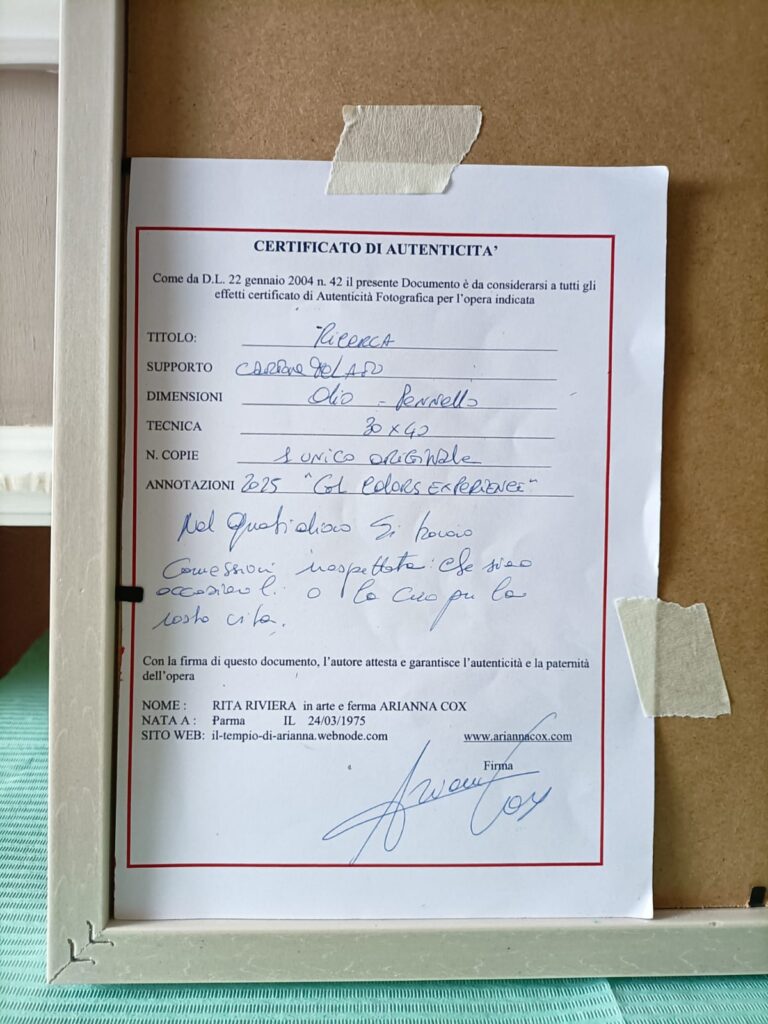 CERTIFICATO DI AUTENTICITA'
Come da D.L. 22 gennaio 2004 n. 42 il presente Documento è da considerarsi a tutti gli
effetti certificato di Autenticità Fotografica per l'opera indicata
TITOLO: Ricerca
SUPPORTO CARTONE TELATO
DIMENSIONI Olio - Pennello
TECNICA 30 x 40
N. COPIE 1 UNICO ORIGINALE
ANNOTAZIONI 2025 "COL COLORS EXPERIENCE"
Nel quotidiano si
Connessioni che siano
occasionali o la per la
vita.
Con la firma di questo documento, l'autore attesta e garantisce l'autenticità e la paternità
dell'opera
NOME : RITA RIVIERA in arte e ferma ARIANNA COX
NATA A : Parma IL 24/03/1975
SITO WEB: il-tempio-di-arianna.webnode.com www.ariannacox.com
Firma
Arianna Cox